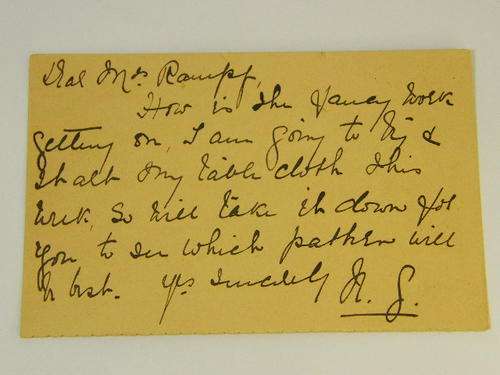 Dear Mrs Rampf,
How is the Fancy Work
getting on, I am going to try &
start my table cloth this
week, so will take it down for
you to see which pattern will
be best. Yrs sincerely N. G.